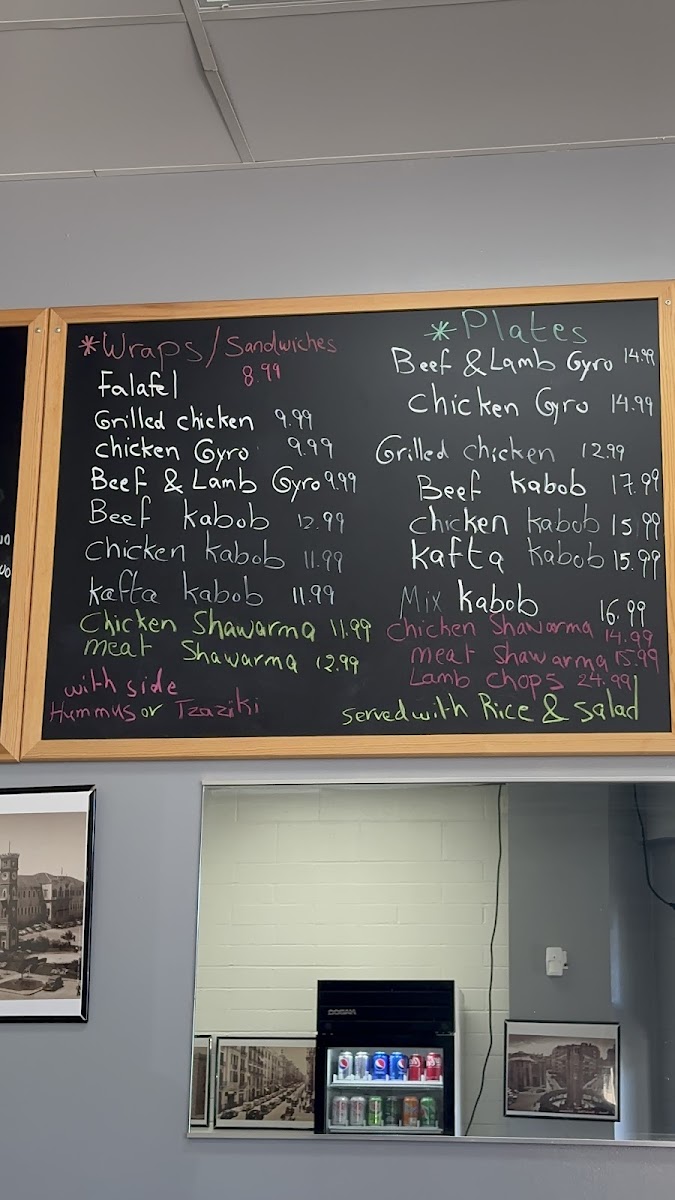 *Wraps/Sandwiches
Falafel 8.99
Grilled chicken 9.99
chicken Gyro 9.99
Beef & Lamb Gyro 9.99
Beef kabob 12.99
chicken kabob 11.99
kafta kabob 11.99
Chicken Shawarma 11.99
meat Shawarma 12.99
with side
Hummus or Tzaziki
*Plates
Beef & Lamb Gyro 14.99
chicken Gyro 14.99
Grilled chicken 12.99
Beef kabob 17.99
chicken kabob 15.99
kafta kabob 15.99
Mix kabob 16.99
chicken Shawarma 14.99
meat Shawarma 15.99
Lamb chops 24.99
served with Rice & Salad